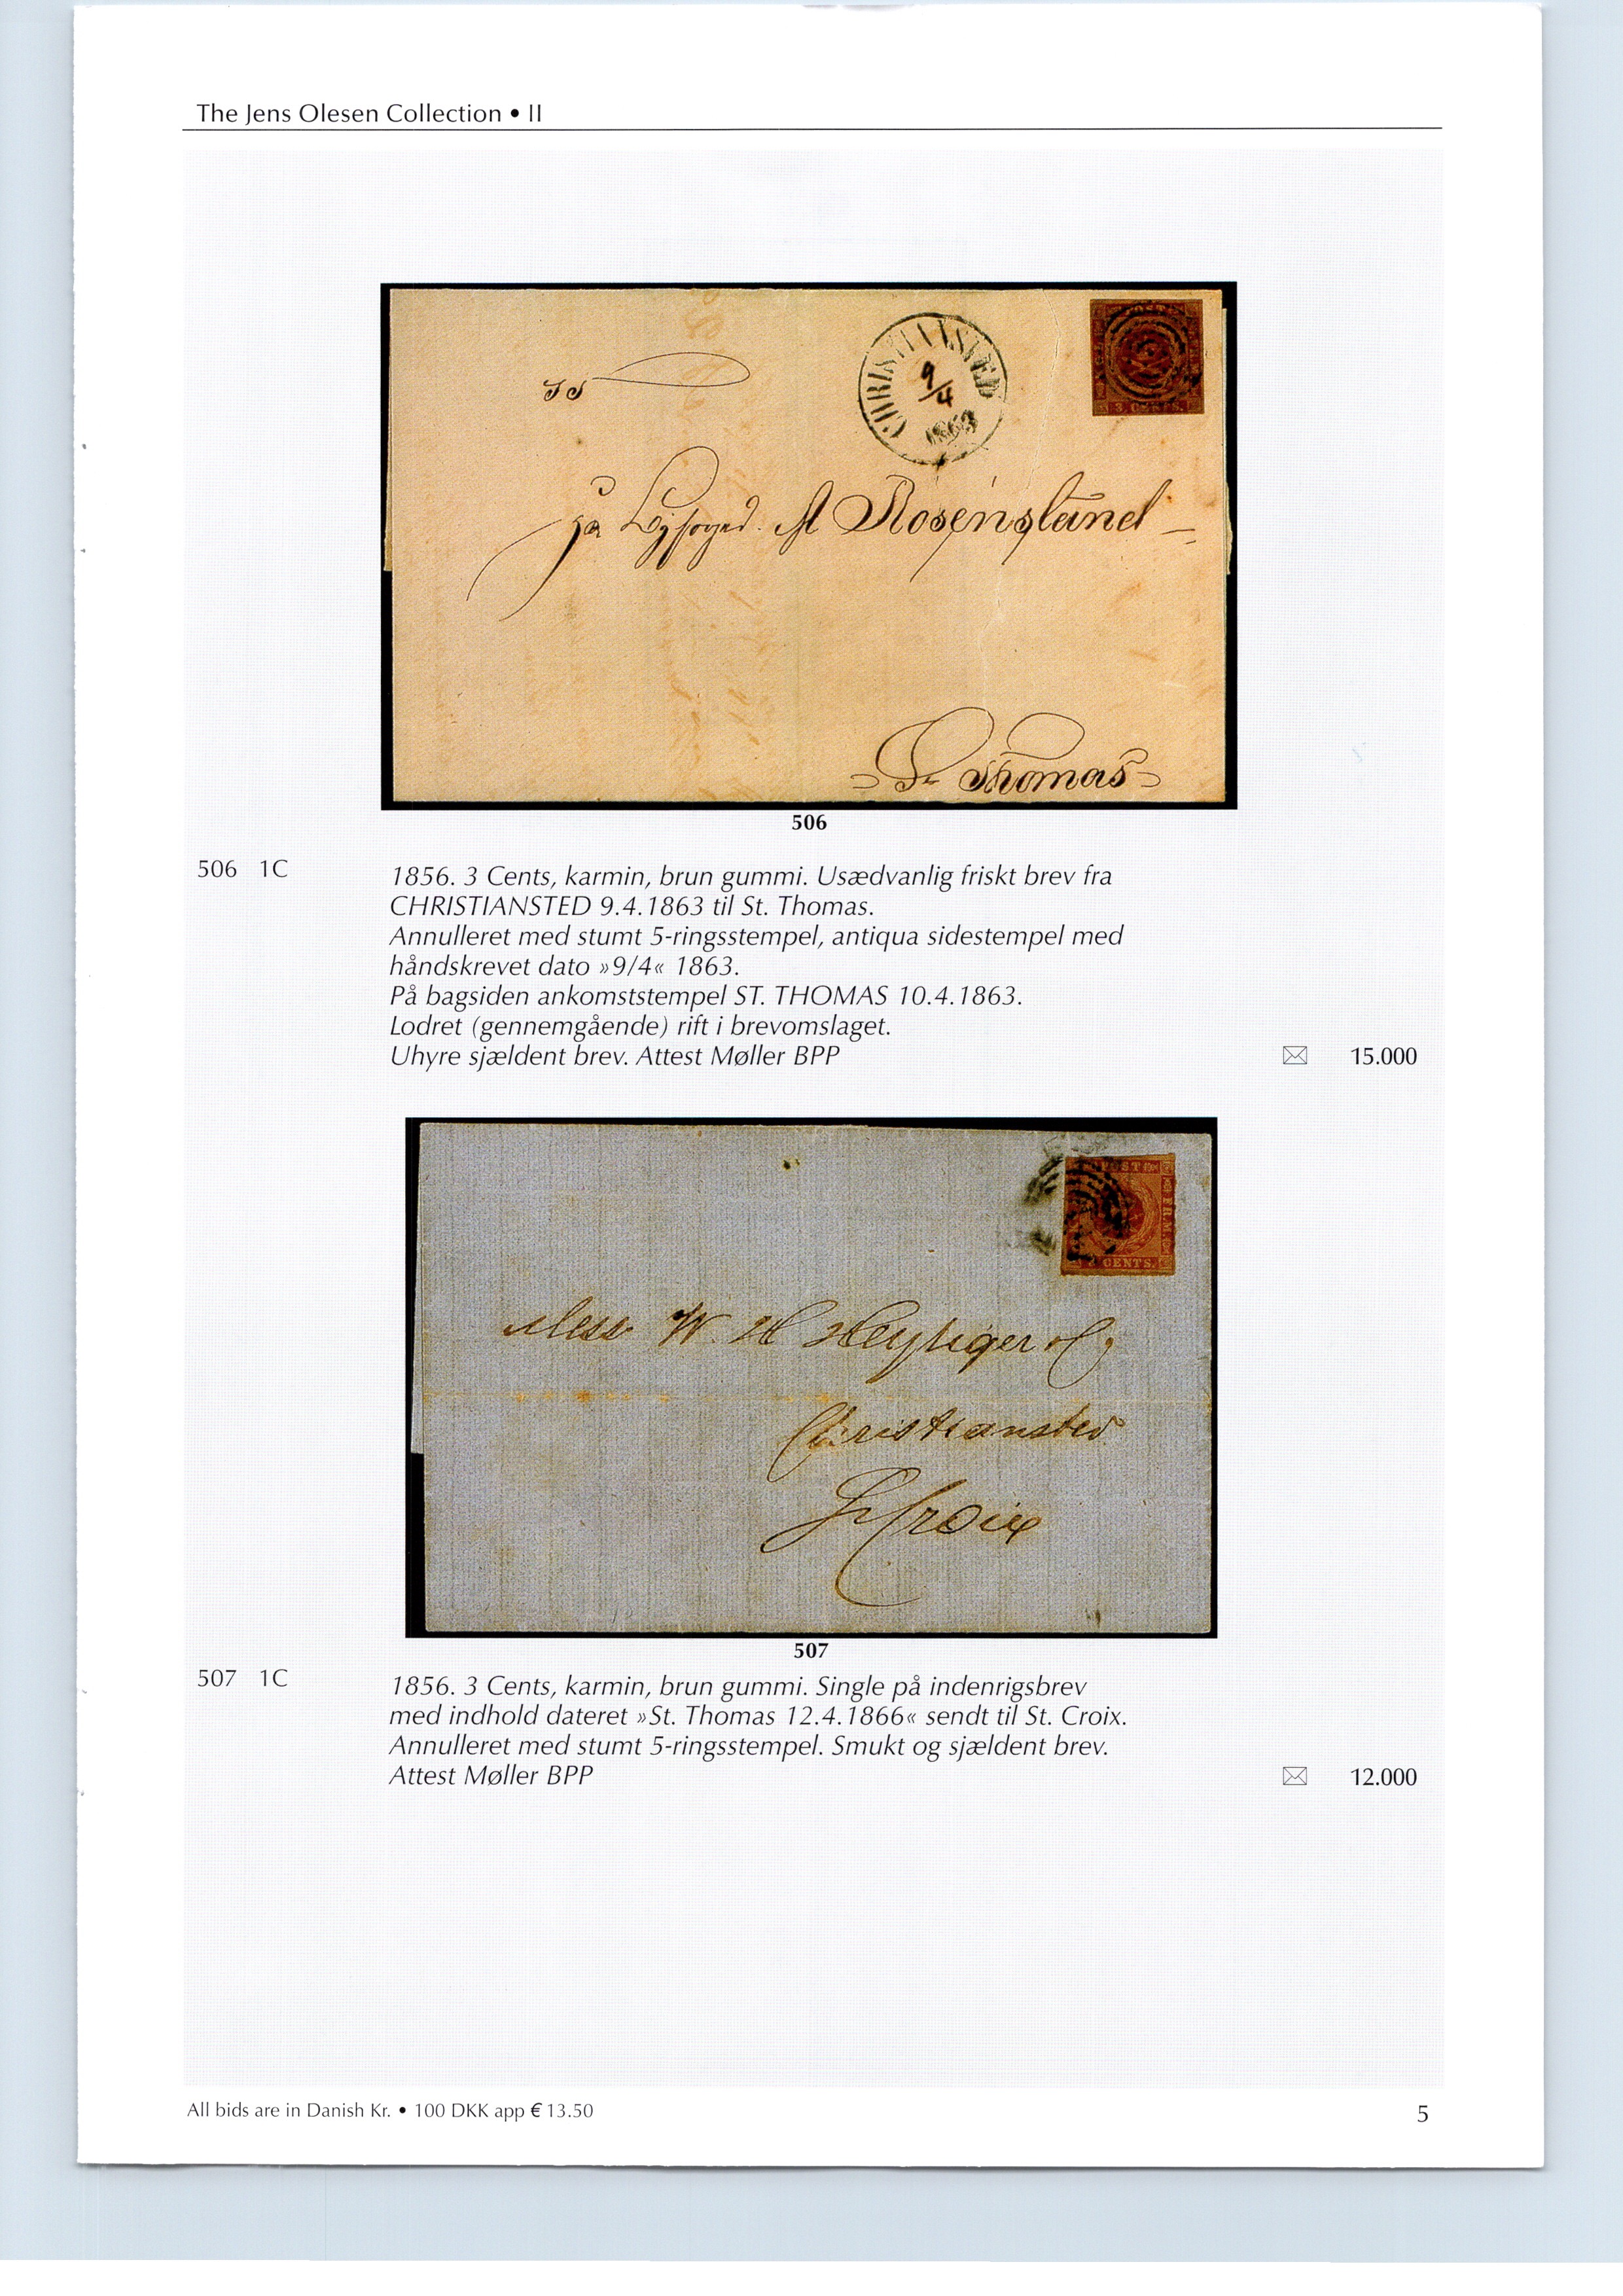 The Jens Olesen Collection • II
CHRISTIANSTED
9/4
1863
3 CENTS.
Rosenstand
St Thomas
506
506 1C
1856. 3 Cents, karmin, brun gummi. Usædvanlig friskt brev fra
CHRISTIANSTED 9.4.1863 til St. Thomas.
Annulleret med stumt 5-ringsstempel, antiqua sidestempel med
håndskrevet dato »9/4« 1863.
På bagsiden ankomststempel ST. THOMAS 10.4.1863.
Lodret (gennemgående) rift i brevomslaget.
Uhyre sjældent brev. Attest Møller BPP
15.000
POST
FRM
CENTS.
Mess W. H Heyliger
Christiansted
St Croix
507
507 1C
1856. 3 Cents, karmin, brun gummi. Single på indenrigsbrev
med indhold dateret »St. Thomas 12.4.1866« sendt til St. Croix.
Annulleret med stumt 5-ringsstempel. Smukt og sjældent brev.
Attest Møller BPP
12.000
All bids are in Danish Kr. • 100 DKK app € 13.50
5